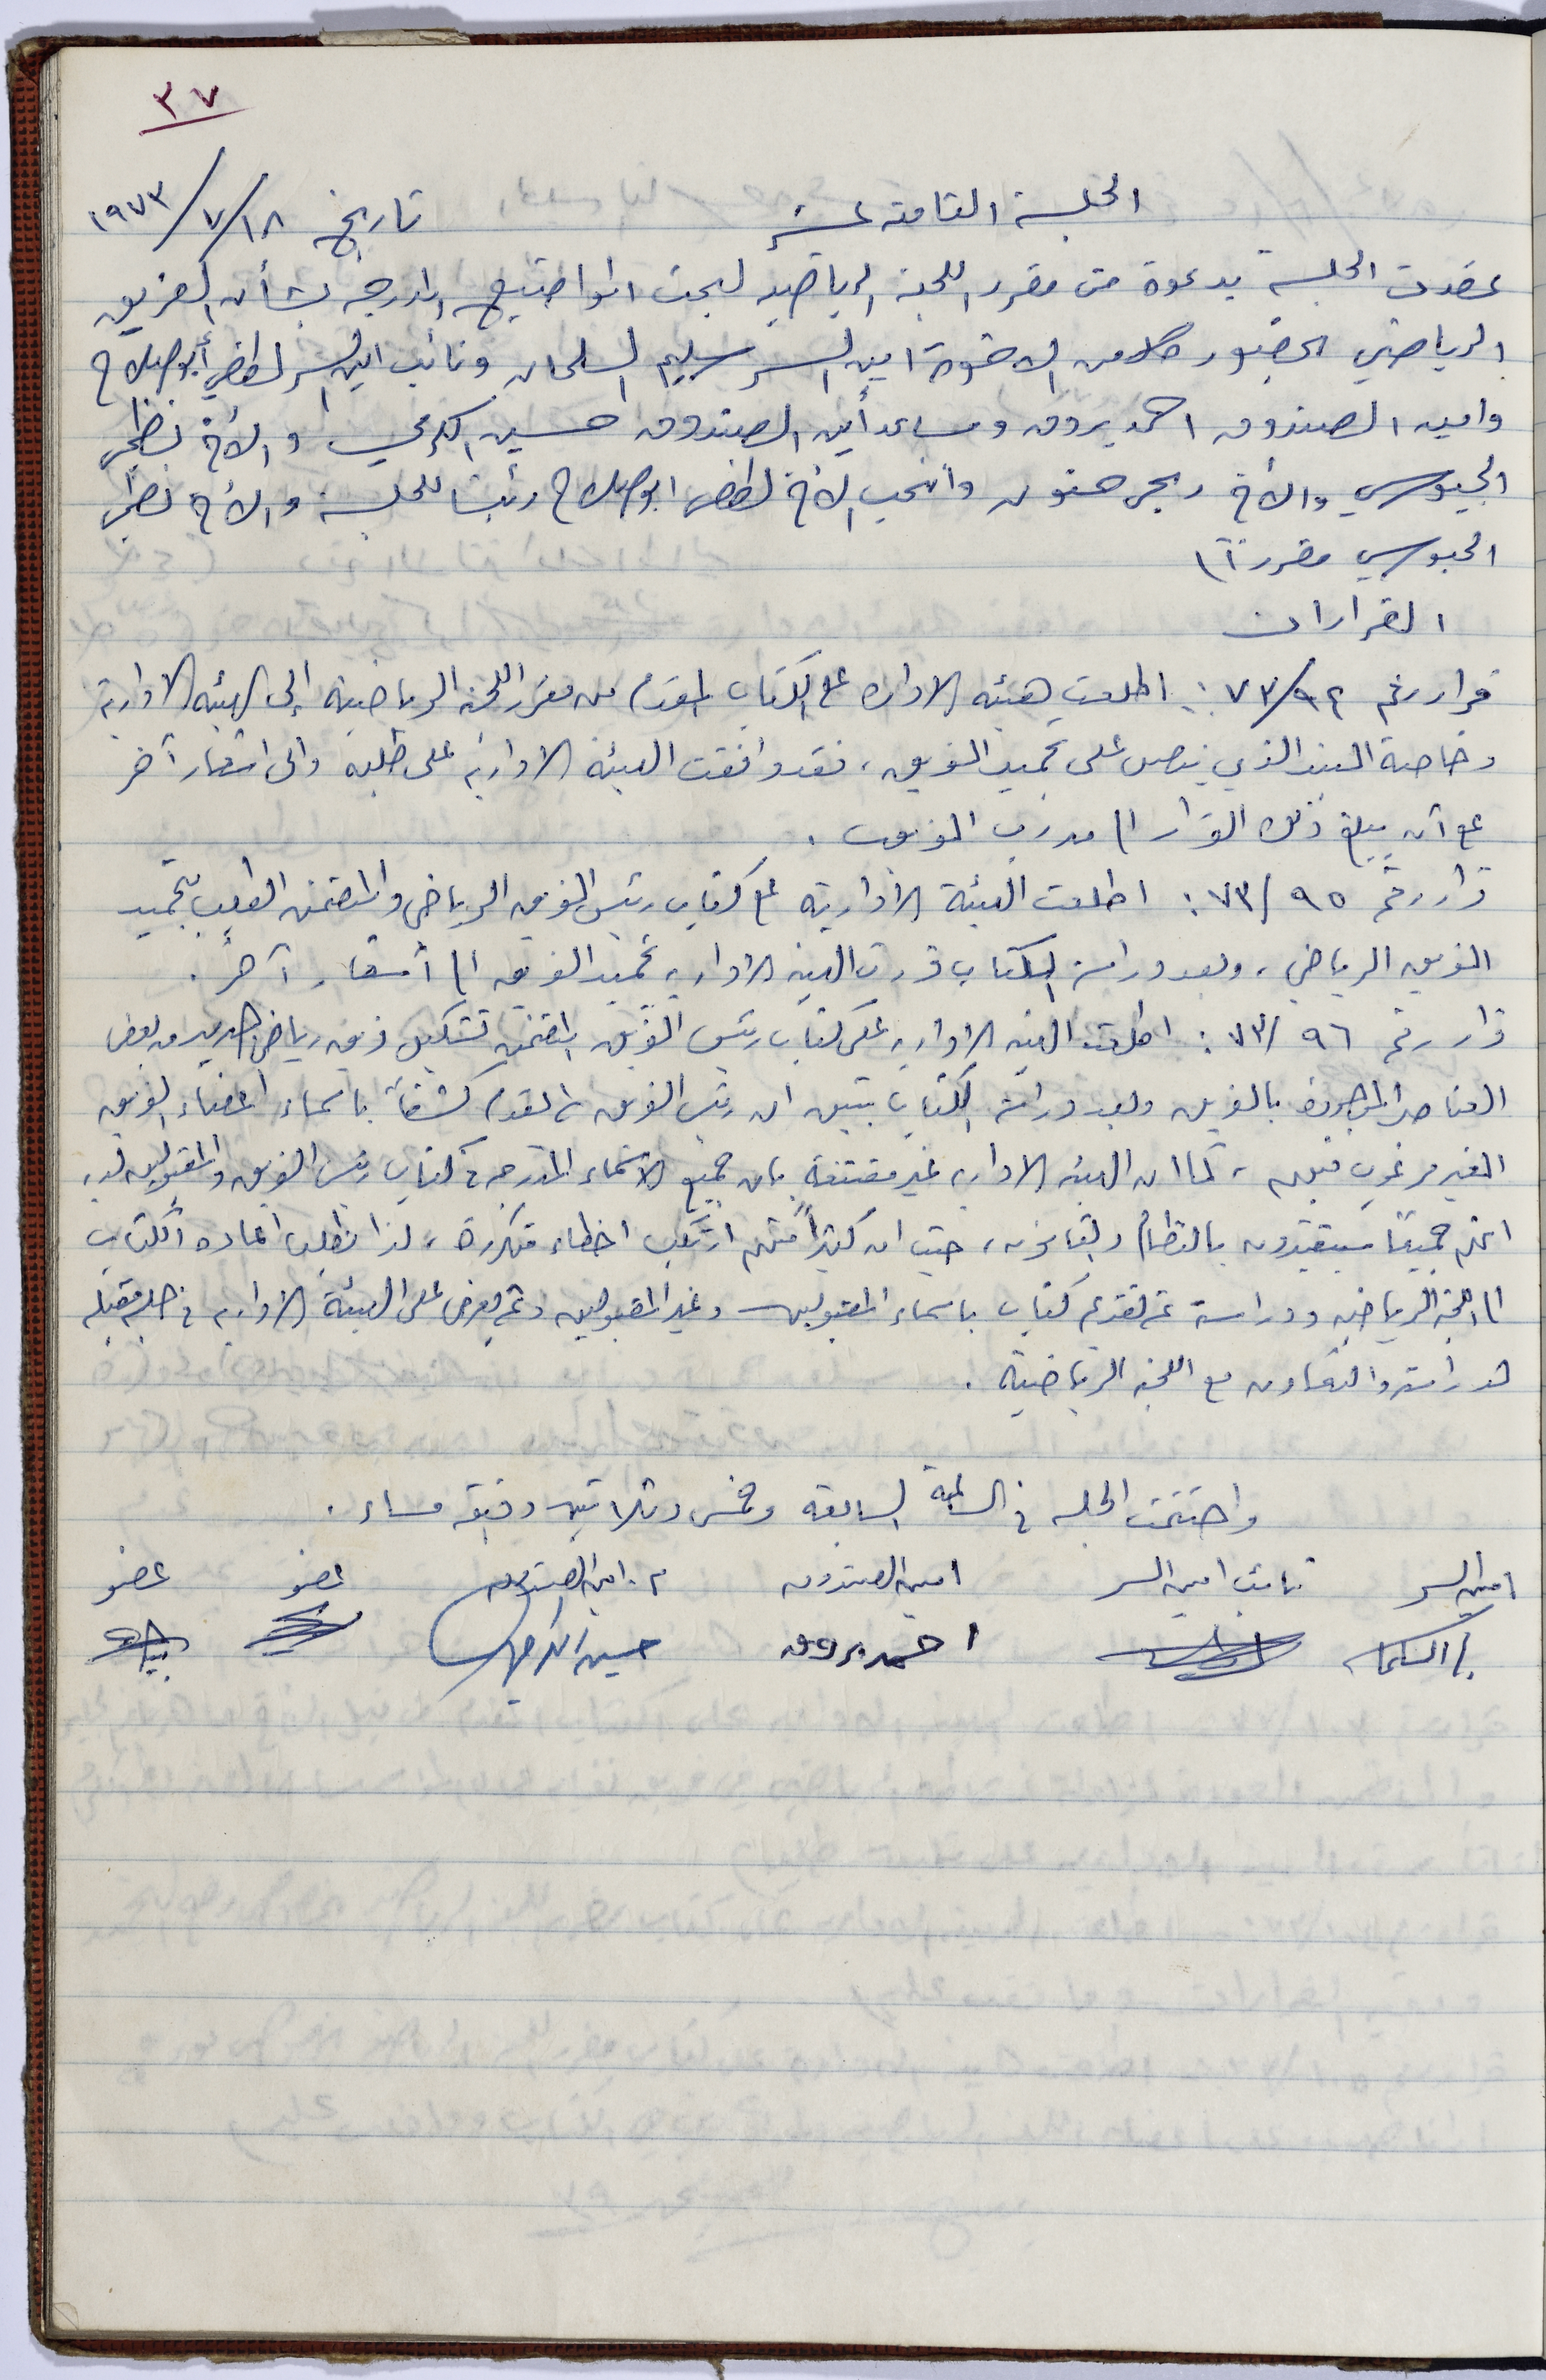 ٣٧
الجلسة الثامنة عشر تاريخ ١٩٧٣/٧/١٨
عقدت الجلسة بدعوة من مقرر اللجنة الرياضية لبحث المواضيع المدرجة بشأن الفريق
الرياضي بحضور كلا من الاخوة امين السر سليم السلمان ونائب امين السر لطفي أبو صلاح
وامين الصندوق احمد بروق ومساعد أمين الصندوق حسين الكرمي والأخ نظمي
الجيوسي والأخ ربحي حنون وانتخب الأخ لطفي ابو صلاح رئيسا للجلسة والأخ نظمي
الجيوسي مقررا
القرارات
قرار رقم ٧٣/٩٤ : اطلعت هيئة الادارة على الكتاب المقدم من مقرر اللجنة الرياضية إلى الهيئة الادارية
وخاصة البند الذي ينص على تجميد الفريق ، فقد وافقت الهيئة الادارية على طلبه والى اشعار آخر
على أن يبلغ ذلك القرار الى مدرب الفريق .
قرار رقم ٧٣/٩٥ : اطلعت الهيئة الادارية على كتاب رئيس الفريق الرياضي والمتضمن الطلب بتجميد
الفريق الرياضي ، وبعد دراسة الكتاب قررت الهيئة الادارية تجميد الفريق الى أشعار آخر .
قرار رقم ٧٣/٩٦ : اطلعت الهيئة الادارية على كتاب رئيس الفريق المتضمن تشكيل فريق رياضي جديد من بعض
العناصر الموجودة بالفريق وبعد دراسة الكتاب تبين ان رئيس الفريق لم يقدم كشفاً باسماء اعضاء الفريق
الغير مرغوب فيهم ، كما ان الهيئة الادارية غير مقتنعة بان جميع الاسماء المدرجة في كتاب رئيس الفريق والمقبولين لديه
انهم جميعاً سيتقيدون بالنظام والقانون ، حيث ان كثيراً منهم ارتكب اخطاء متكررة ، لذا نطلب اعادة الكتاب
الى اللجنة الرياضية ودراسة ثم تقديم كتاب باسماء المقبولين وغير المقبولين وثم يعرض على الهيئة الادارية في جلسة مقبلة
لدراسته والتعاون مع اللجنة الرياضية .
واختتمت الجلسة في الساعة السابعة وخمس وثلاثين دقيقة مساء .
امين السر نائب امين السر امين الصندوق م . امين الصندوق عضو عضو
السلمان احمد بروق حسين الكرمي